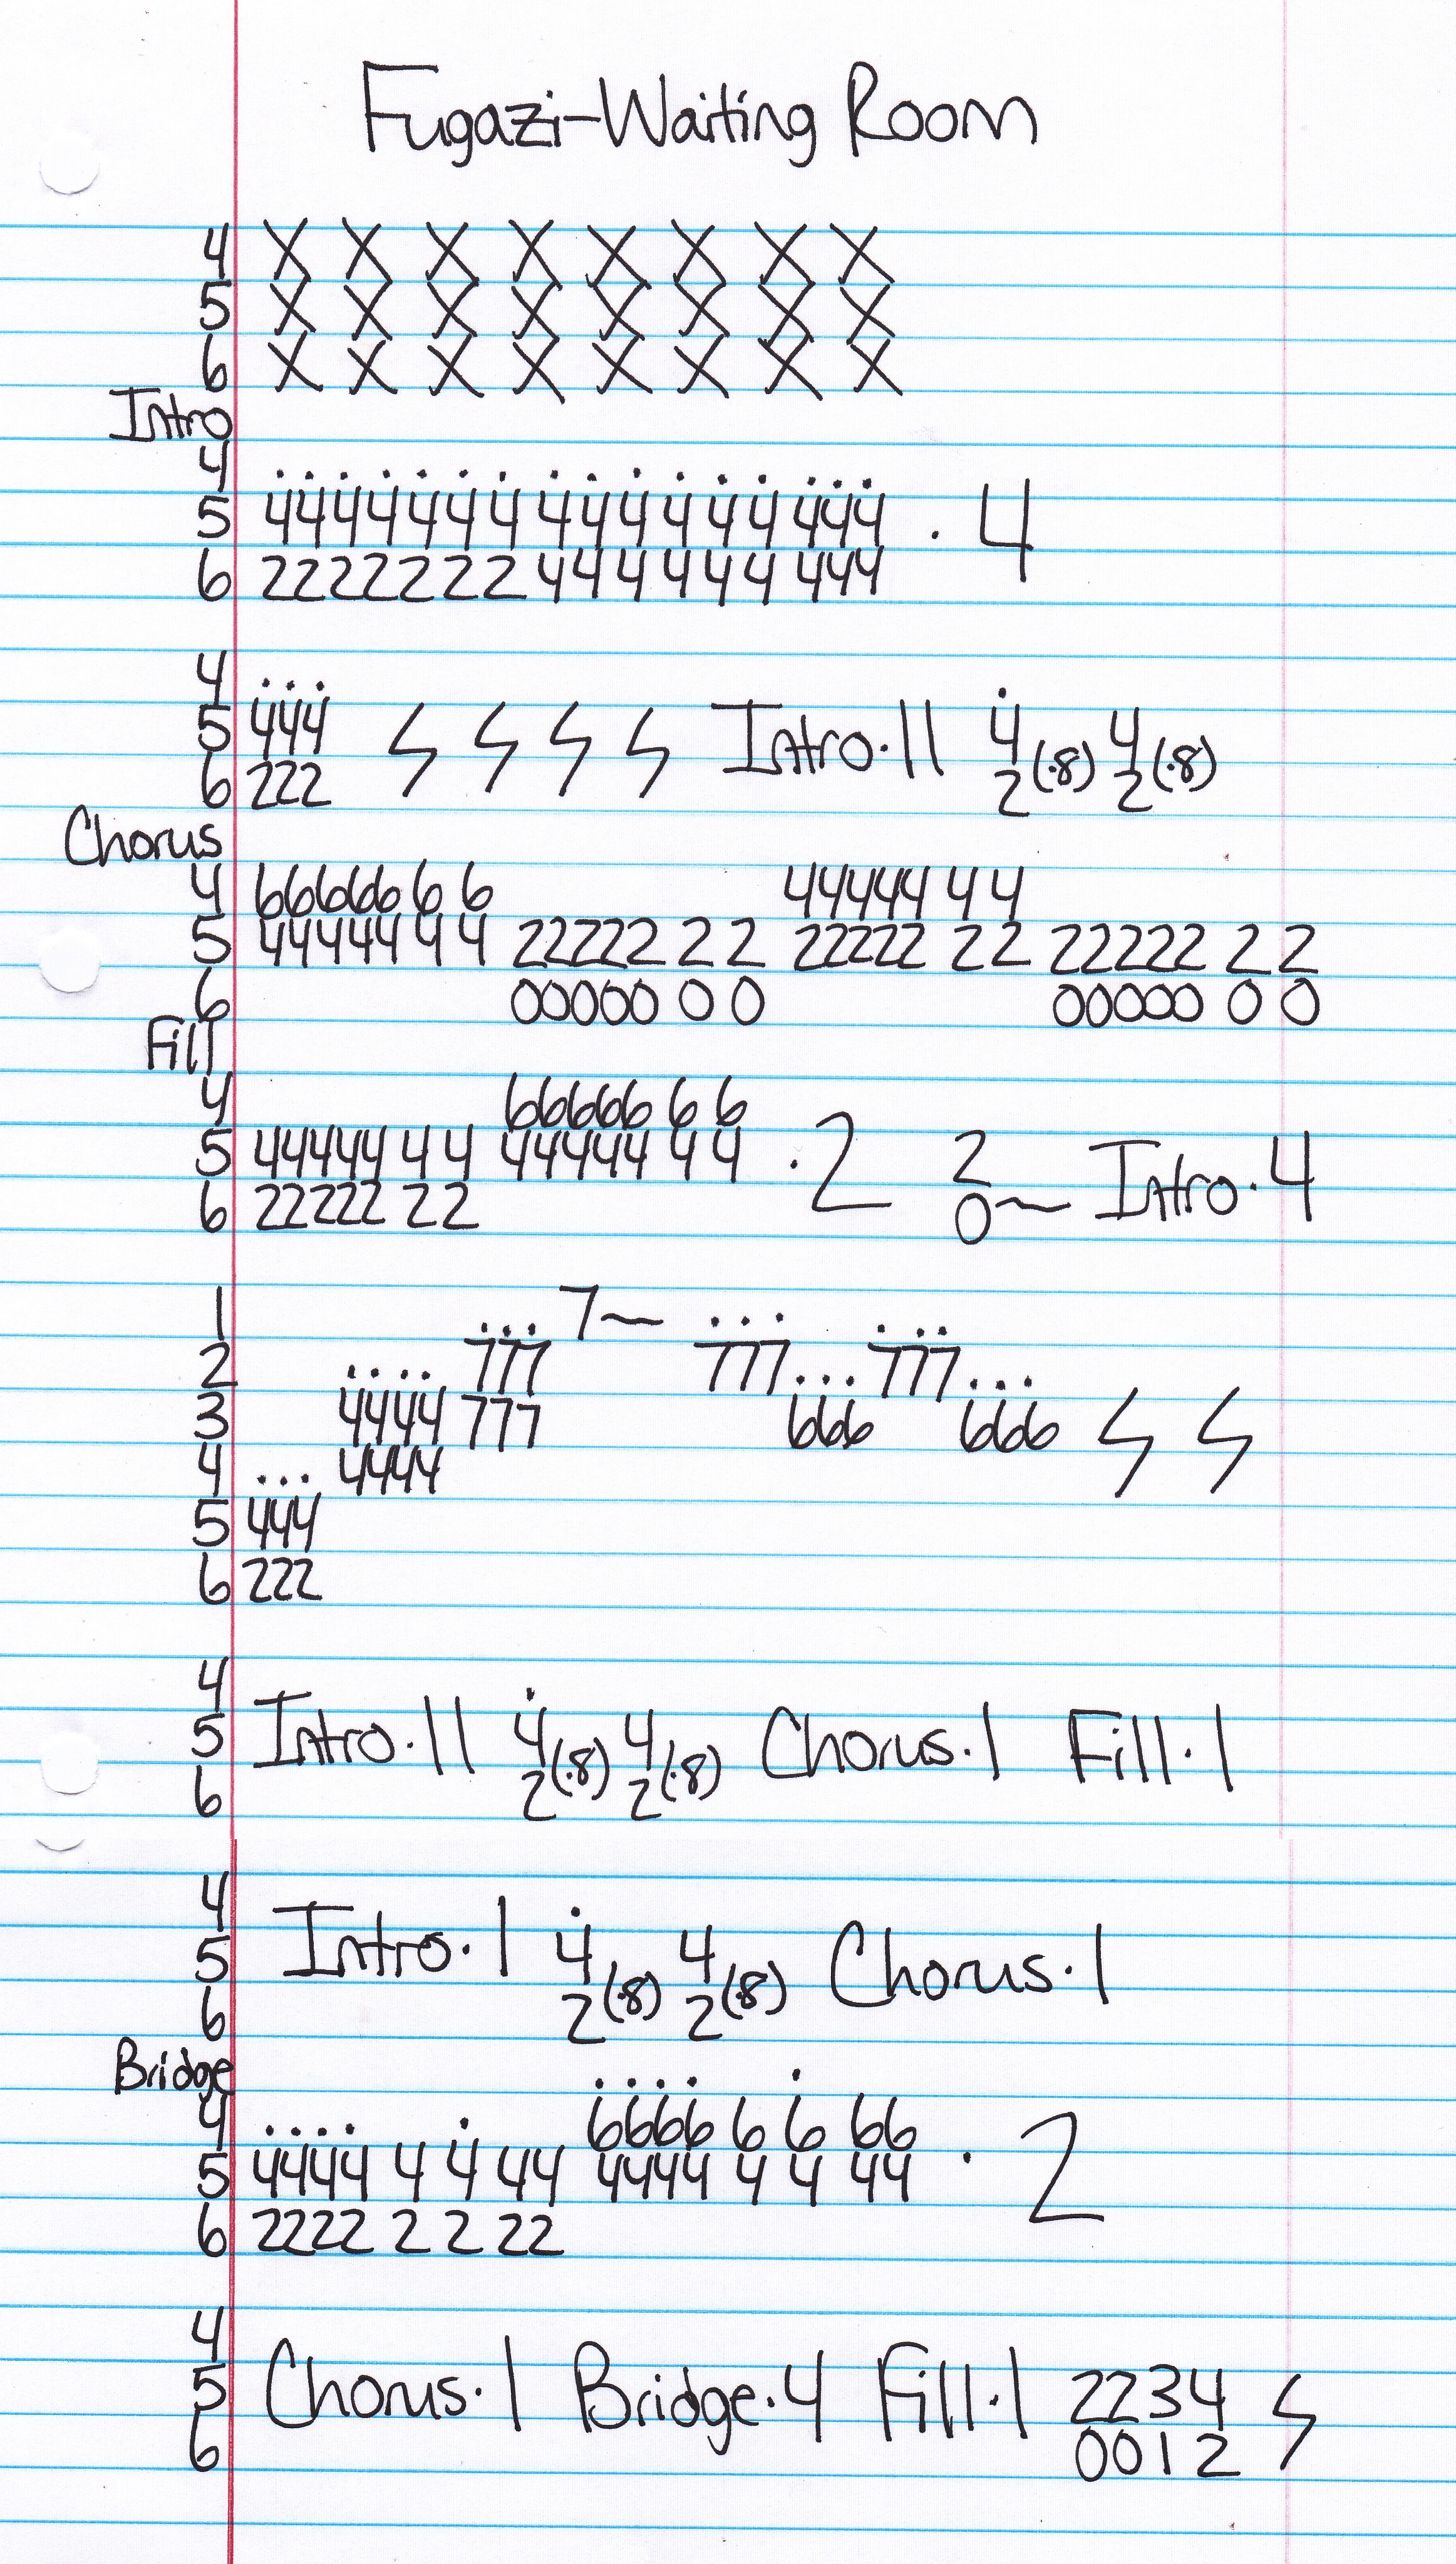 Fugazi-Waiting Room
4 X X X X X X X X
5 X X X X X X X X
6 X X X X X X X X
Intro
4
5 4444444 444444 444 · 4
6 2222222 444444 444
4
5 444 Intro·11 4(·8) 4(·8)
6 222 2 2
Chorus
4 66666 6 6 44444 4 4
5 44444 4 4 22222 2 2 22222 2 2 22222 2 2
6 00000 0 0 00000 0 0
Fill
4 66666 6 6
5 44444 4 4 44444 4 4 ·2 2 Intro·4
6 22222 2 2 0~
1 7~
2 777 777 777
3 4444 777 666 666
4 4444
5 444
6 222
4
5 Intro·11 4(·8) 4(·8) Chorus·1 Fill·1
6 2 2
4
5 Intro·1 4(·8) 4(·8) Chorus·1
6 2 2
Bridge
4 6666 6 6 66
5 4444 4 4 44 4444 4 4 44 · 2
6 2222 2 2 22
4
5 Chorus·1 Bridge·4 Fill·1 2234
6 0012